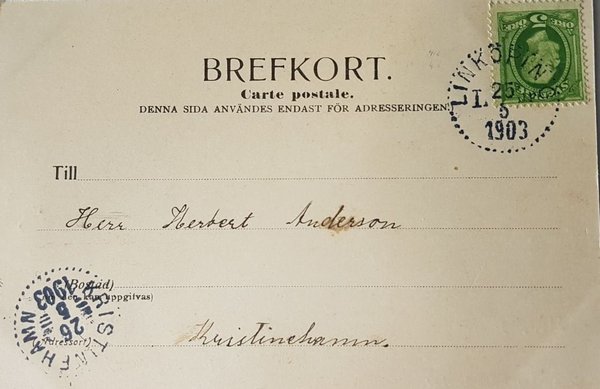 BREFKORT.
Carte postale.
DENNA SIDA ANVÄNDES ENDAST FÖR ADRESSERINGEN.
5
LINKÖPING
L.
25
5
1903
Till
Herr Herbert Anderson
(Bostad)
den kan uppgifvas)
(Adressort)
Kristinehamn.
KRISTINEHAMN
26
5
1903